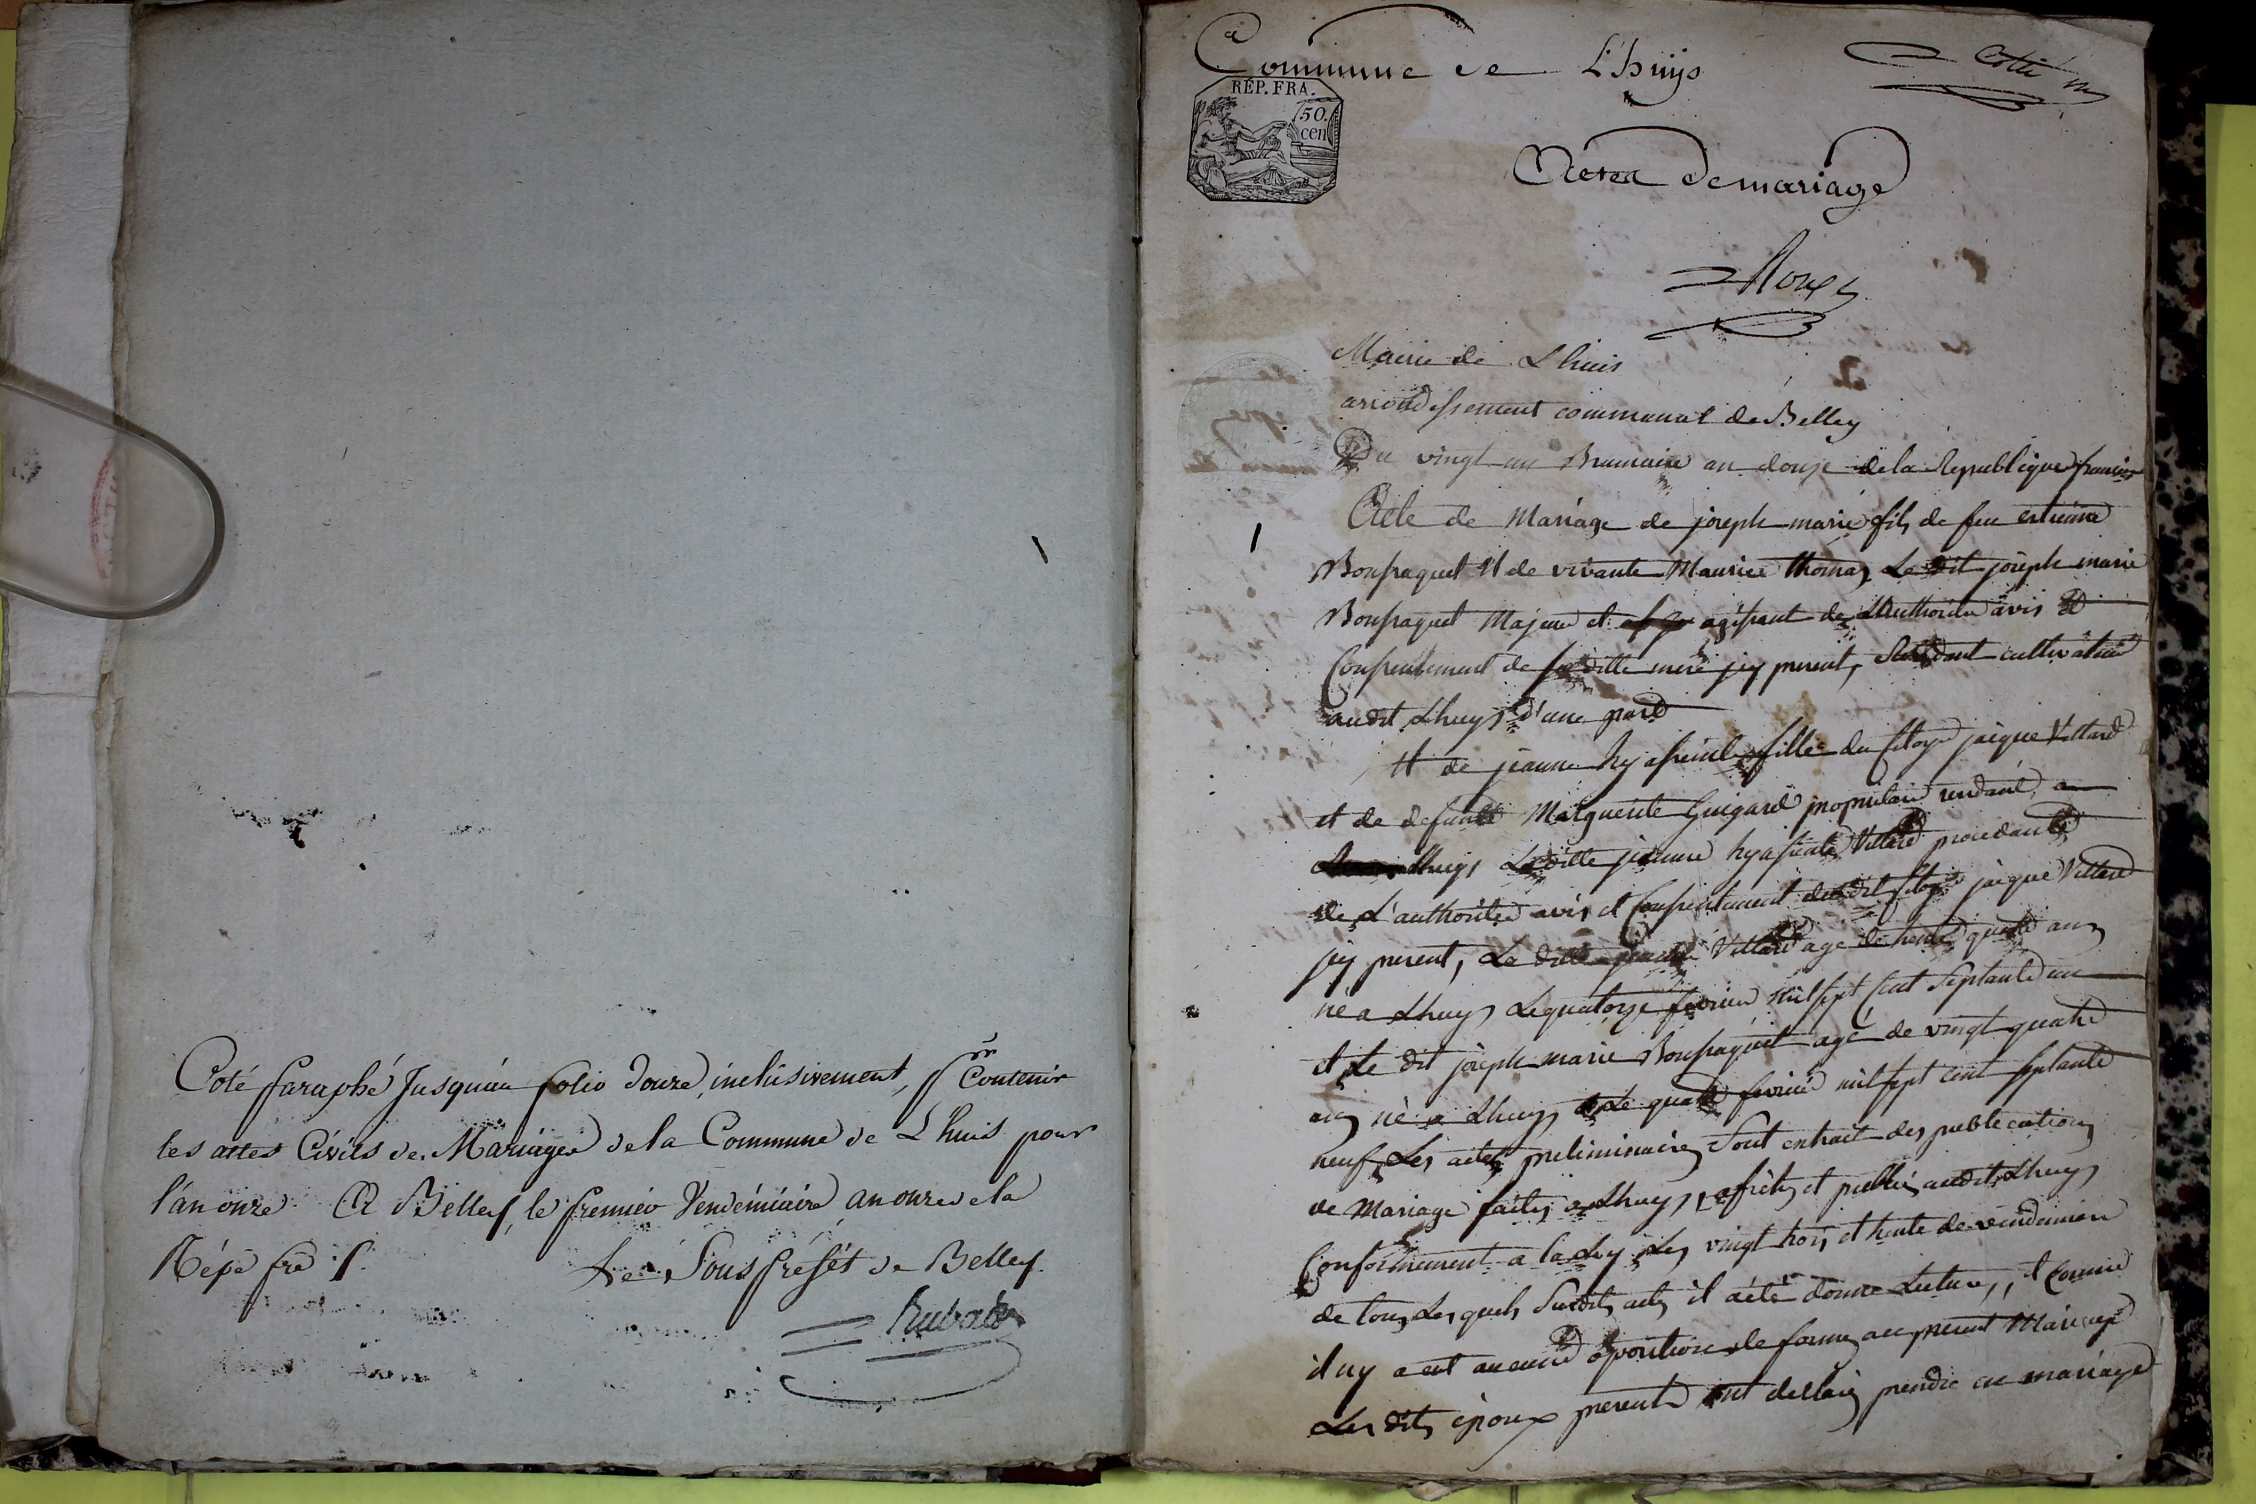 Coté paraphé Jusqu'au folio douze inclusivement, pr Contenir
les actes Civils de Mariages de la Commune de L'huis pour
l'an onze. A Belley, le premier Vendémiaire an onze de la
Répe fre /.
Le Sous préfét de Belley.
Rubat
Commune de L'huijs
RÉP. FRA.
50
cen
Actes de mariage
Mairie de Lhuis
arrondissement communal de Belley
Du vingt un Brumaire an douze de la Republique francaise
Acte de Mariage de joseph marie fils de feu estienne
Bonpaquet Et de vivante Maurice thomas Le dit joseph marie
Bonpaquet Majeur et agissant de L'Authorité avis Et
Consentement de sa ditte mere jcy present, Residant cultivateur
audit Lhuys d'une part
Et de jeanne hyaseinte fille du sitoyen jaique Vittard
et de defunte Marguerite Guigard propriétaire rendant a
Lhuys La ditte jeanne hyasinte Vittard procedante
de L'authoritée avis et Consentement du dit sitoyen jaique Vittard
jcy present, La ditte Vittard age de trente quatre ans
né a Lhuys Le quatorze fevrier mil sept Cent Septante un
et Le dit joseph marie Bonpaquet agé de vingt quatre
ans né a Lhuys Le quatre fevrier mil sept cent septante
neuf, Les actes preliminaires Sont extrait des publications
de Mariage faites a Lhuys, afichés et publié audit Lhuys
Conformement a la Loy Les vingt trois et trente de vendemiere
de tous Les quels Susdits actes il a été donné Lecture, et Comme
il ny a eut aucune oposition de forme au present Mariage
Les dits époux present ont declaré prendre en mariage